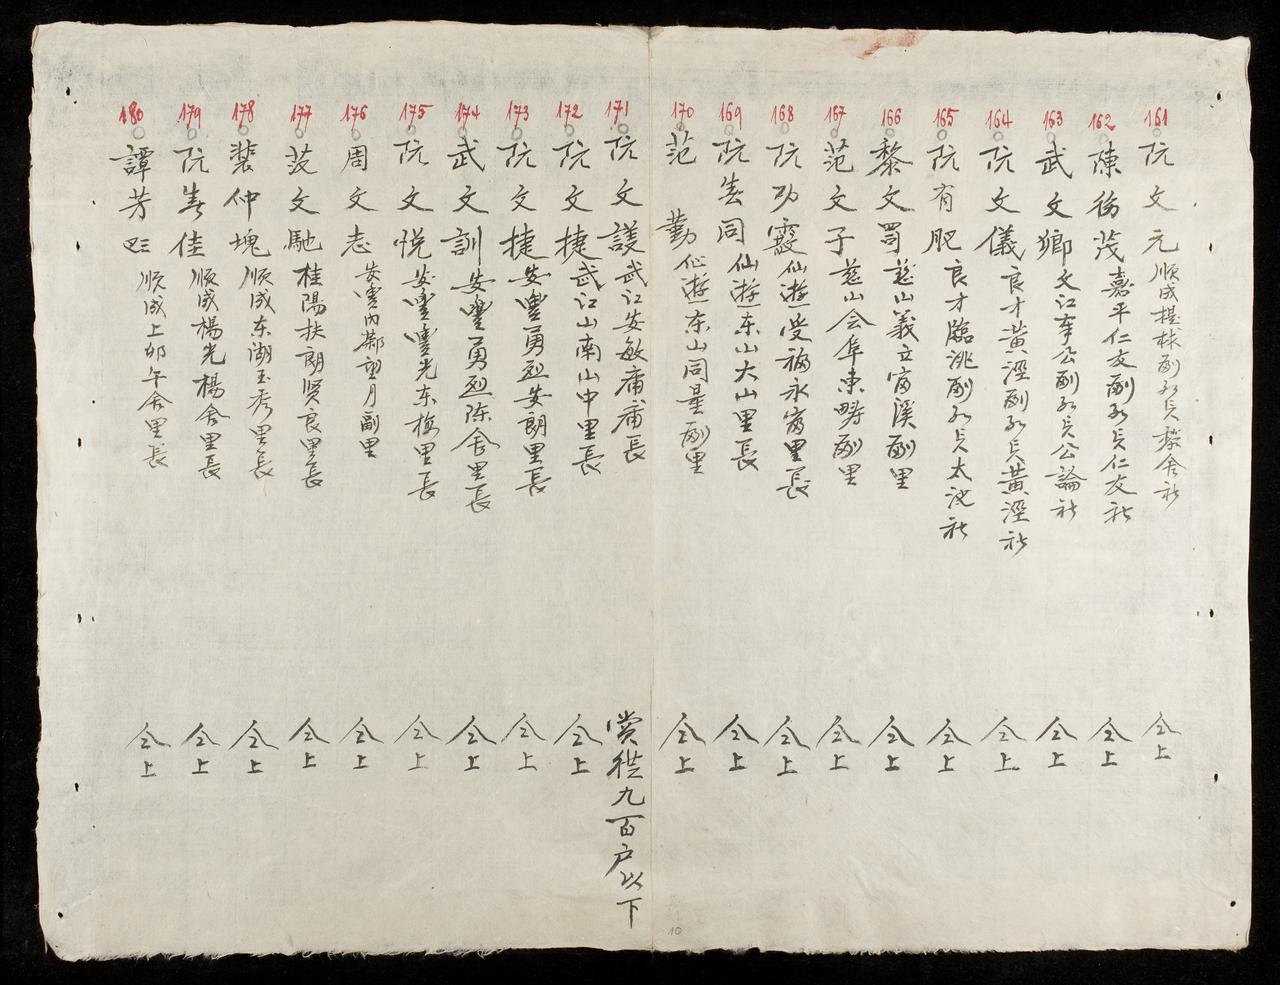 161 阮文元 順成提梂副委員黎舍社 仝上
162 陳務茂 嘉平仁友副委員仁友社 仝上
163 武文鄉 文江奉公副委員公論社 仝上
164 阮文儀 良才黃涇副委員黃涇社 仝上
165 阮有肥 良才臨洮副委員太池社 仝上
166 黎文司 慈山義立富溪副里 仝上
167 范文子 慈山會阜東疇副里 仝上
168 阮功霞 仙遊受福永富里長 仝上
169 阮春同 仙遊東山大山里長 仝上
170 范勤 仙遊東山同量副里 仝上
171 阮文護 武江安敏甫甫長 賞從九百户以下
172 阮文捷 武江山南山中里長 仝上
173 阮文捷 安豐勇烈安朗里長 仝上
174 武文訓 安豐勇烈陈舍里長 仝上
175 阮文悦 安豐豐光東梅里長 仝上
176 周文志 安豐內鄰望月副里 仝上
177 范文馳 桂陽扶朗贤良里長 仝上
178 裴仲塊 順成东湖玉秀里長 仝上
179 阮春佳 順成楊光楊舍里長 仝上
180 譚芳 順成上卯午舍里長 仝上
10